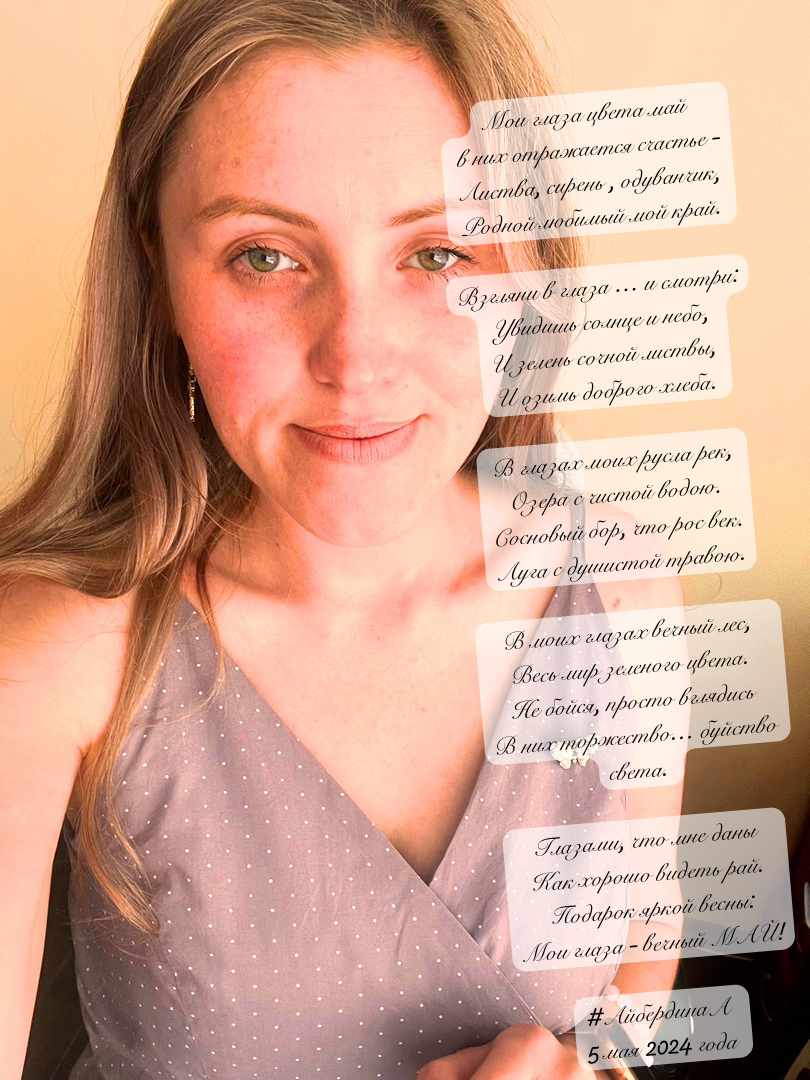 Мои глаза цвета май
в них отражается счастье -
Листва, сирень , одуванчик,
Родной любимый мой край.
Взгляни в глаза ... и смотри:
Увидишь солнце и небо,
И зелень сочной листвы,
И озимь доброго хлеба.
В глазах моих русла рек,
Озера с чистой водою.
Сосновый бор, что рос век.
Луга с душистой травою.
В моих глазах вечный лес,
Весь мир зеленого цвета.
Не бойся, просто вглядись
В них торжество... буйство
света.
Глазами, что мне даны
Как хорошо видеть рай.
Подарок яркой весны:
Мои глаза - вечный МАЙ!
#АйбердинаА
5 мая 2024 года